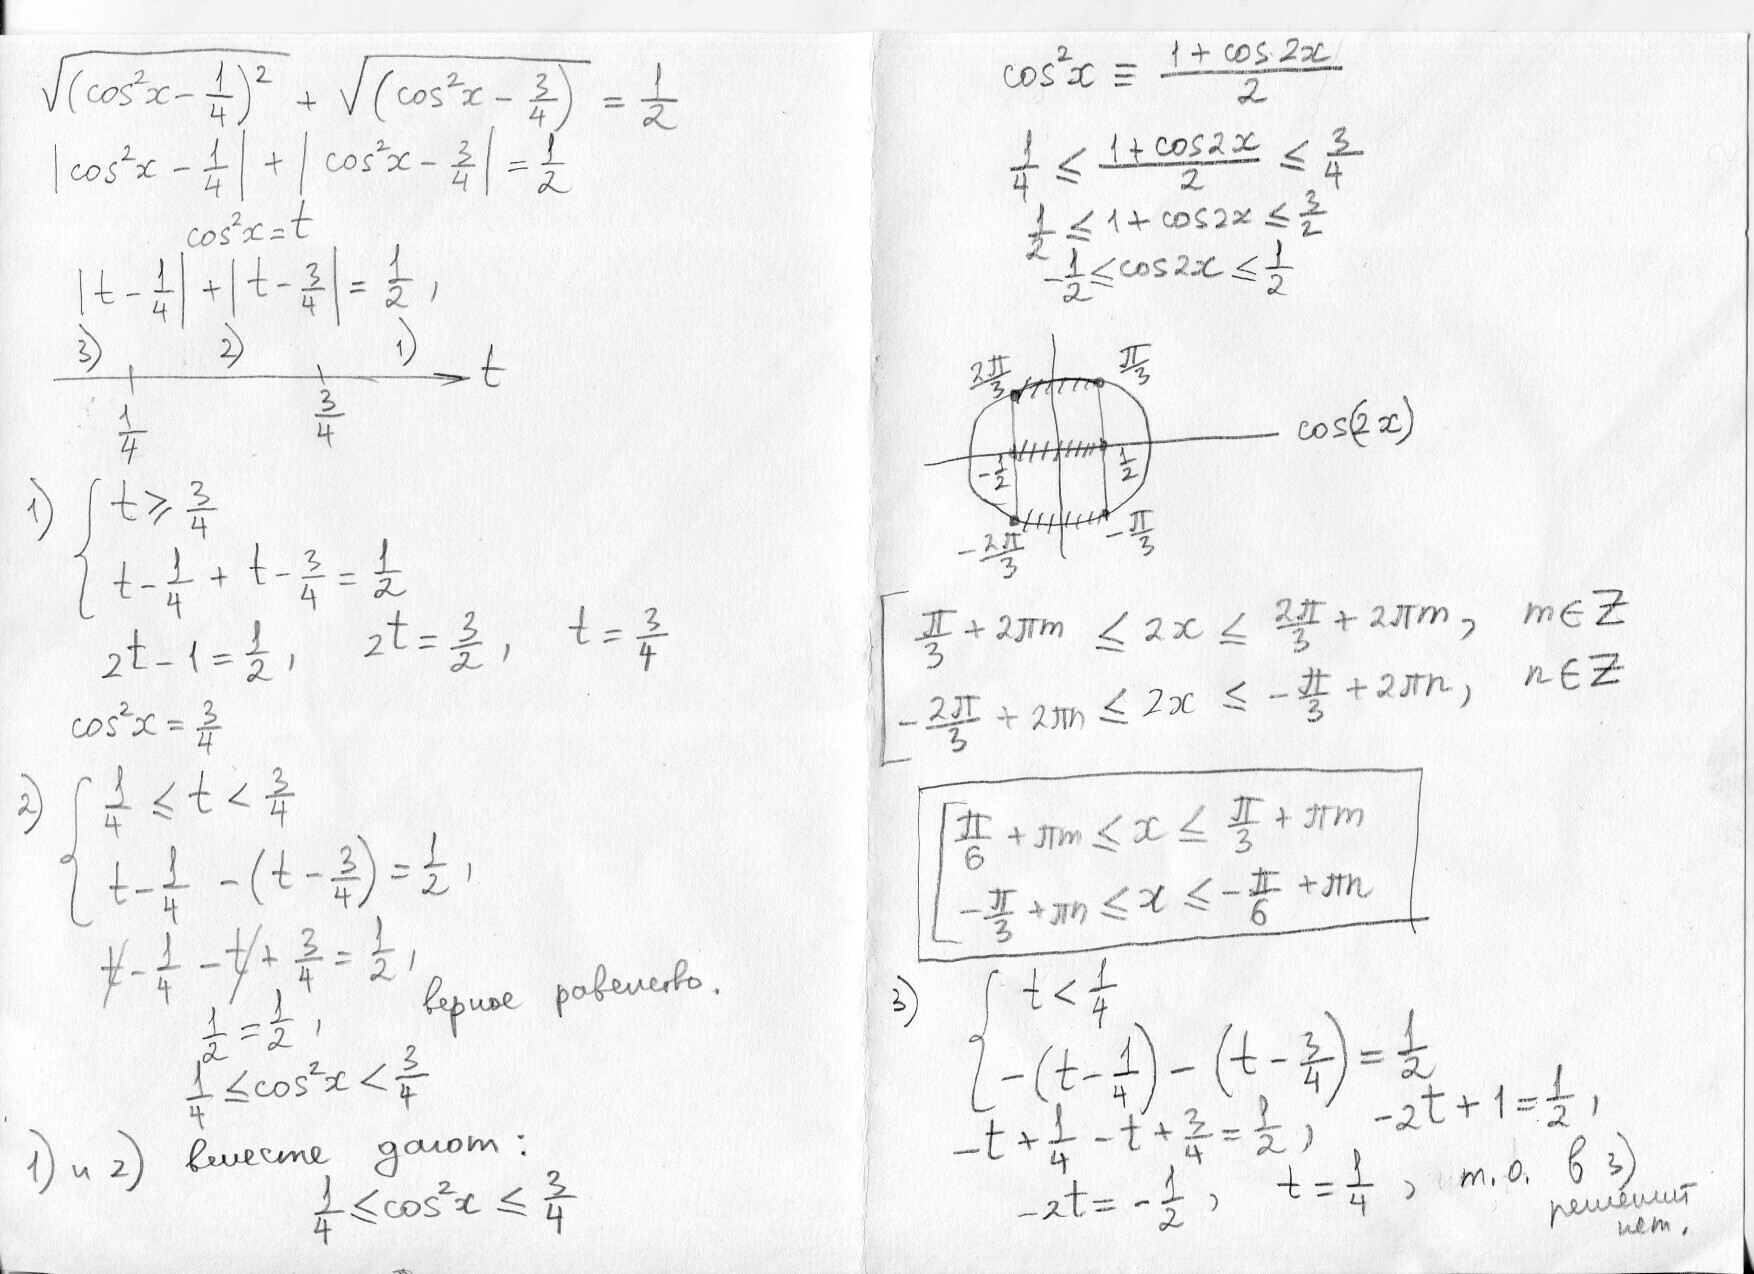 √(cos²x - 1/4)² + √(cos²x - 3/4) = 1/2
|cos²x - 1/4| + |cos²x - 3/4| = 1/2
cos²x = t
|t - 1/4| + |t - 3/4| = 1/2,
3) 2) 1)
t
1/4 3/4
1) { t ⩾ 3/4
t - 1/4 + t - 3/4 = 1/2
2t - 1 = 1/2, 2t = 3/2, t = 3/4
cos²x = 3/4
2) { 1/4 ≤ t < 3/4
t - 1/4 - (t - 3/4) = 1/2,
t - 1/4 - t + 3/4 = 1/2,
верное равенство.
1/2 = 1/2,
1/4 ≤ cos²x < 3/4
1) и 2) вместе дают:
1/4 ≤ cos²x ≤ 3/4
cos²x ≡ (1 + cos 2x)/2
1/4 ≤ (1 + cos2x)/2 ≤ 3/4
1/2 ≤ 1 + cos2x ≤ 3/2
-1/2 ≤ cos2x ≤ 1/2
2π/3 π/3
cos(2x)
-1/2 1/2
-2π/3 -π/3
[ π/3 + 2πm ≤ 2x ≤ 2π/3 + 2πm, m∈Z
-2π/3 + 2πn ≤ 2x ≤ -π/3 + 2πn, n∈Z
[ π/6 + πm ≤ x ≤ π/3 + πm
-π/3 + πn ≤ x ≤ -π/6 + πn
3) { t < 1/4
-(t - 1/4) - (t - 3/4) = 1/2
-t + 1/4 - t + 3/4 = 1/2, -2t + 1 = 1/2,
-2t = -1/2, t = 1/4, т.о. в 3)
решений
нет.